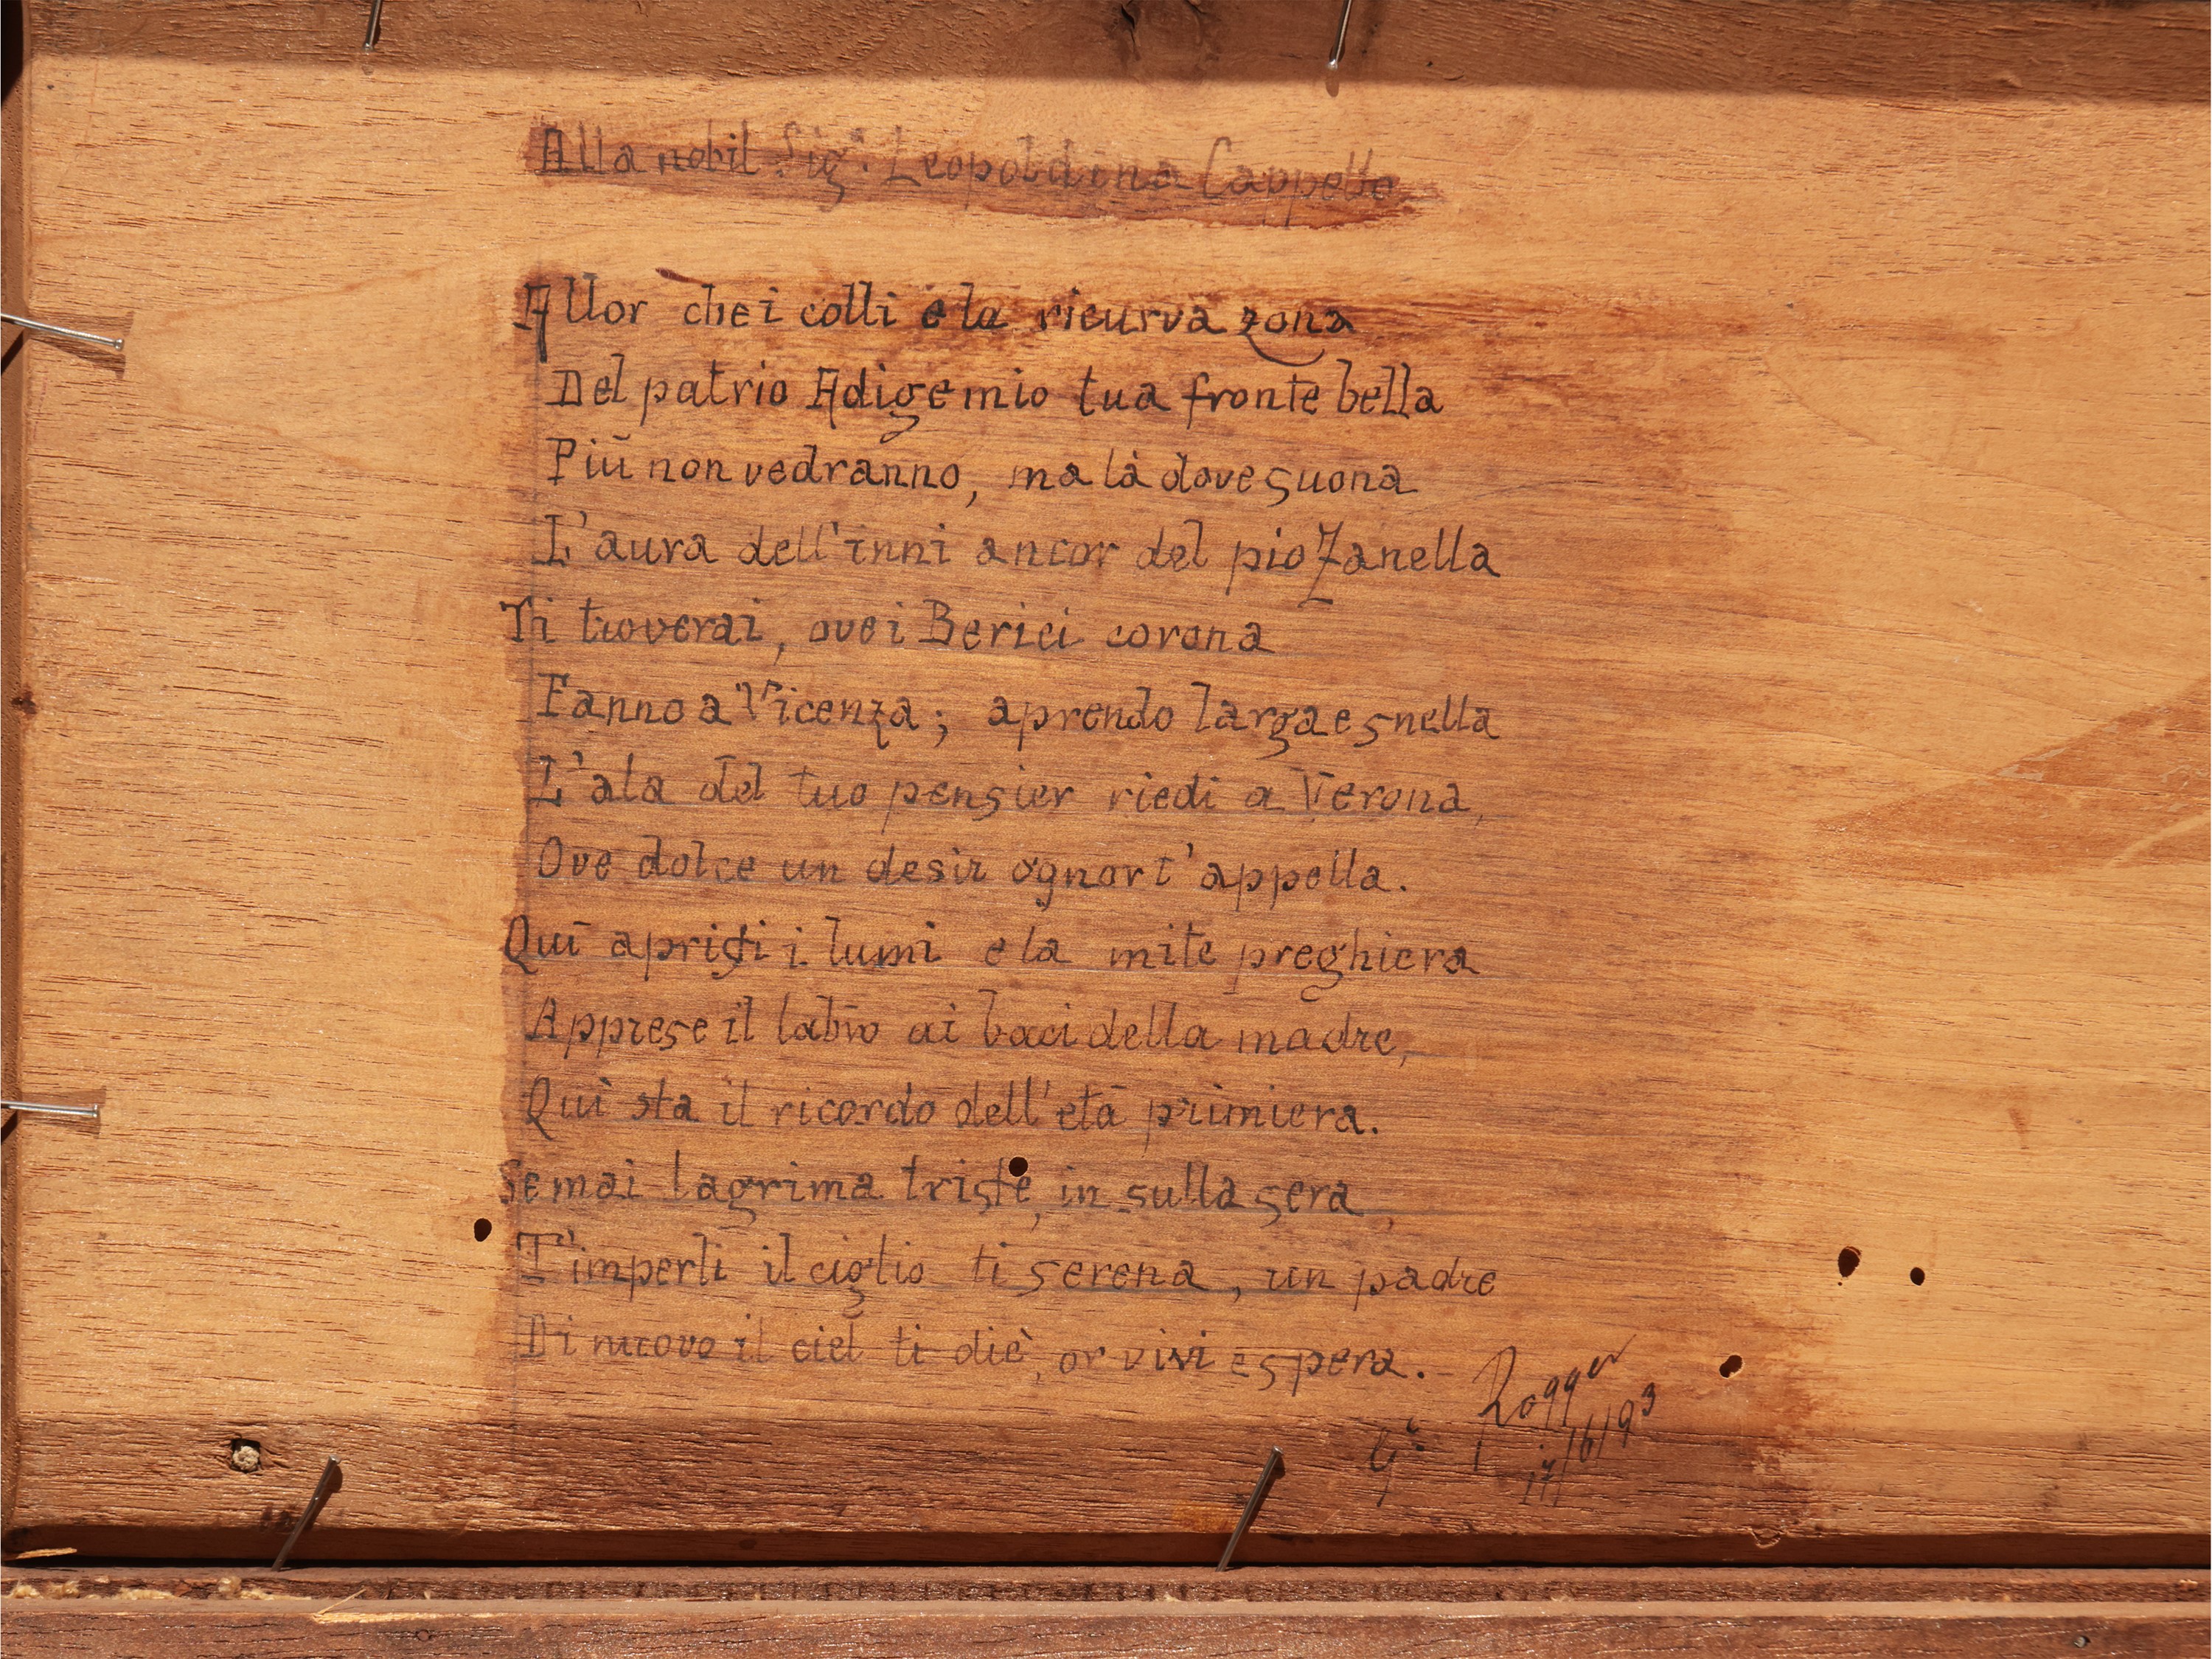 Alla nobil Sig.ª Leopoldina Cappello
Allor che i colli e la ricurva zona
Del patrio Adige mio tua fronte bella
Più non vedranno, ma là dove suona
L'aura dell'inni ancor del pio Zanella
Ti troverai, ove i Berici corona
Fanno a Vicenza; aprendo larga e snella
L'ala del tuo pensier riedi a Verona,
Ove dolce un desir ognor t'appella.
Quì apristi i lumi e la mite preghiera
Apprese il labro ai baci della madre,
Quì sta il ricordo dell'età primiera.
Se mai lagrima triste, in sulla sera
T'imperli il ciglio ti serena, un padre
Di nuovo il ciel ti diè, or vivi e spera.
Rogger
17/6/93